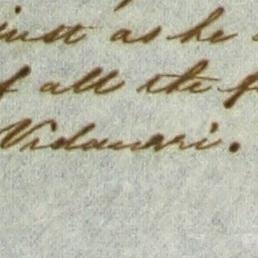 just as he
of all the
Vidaurri.